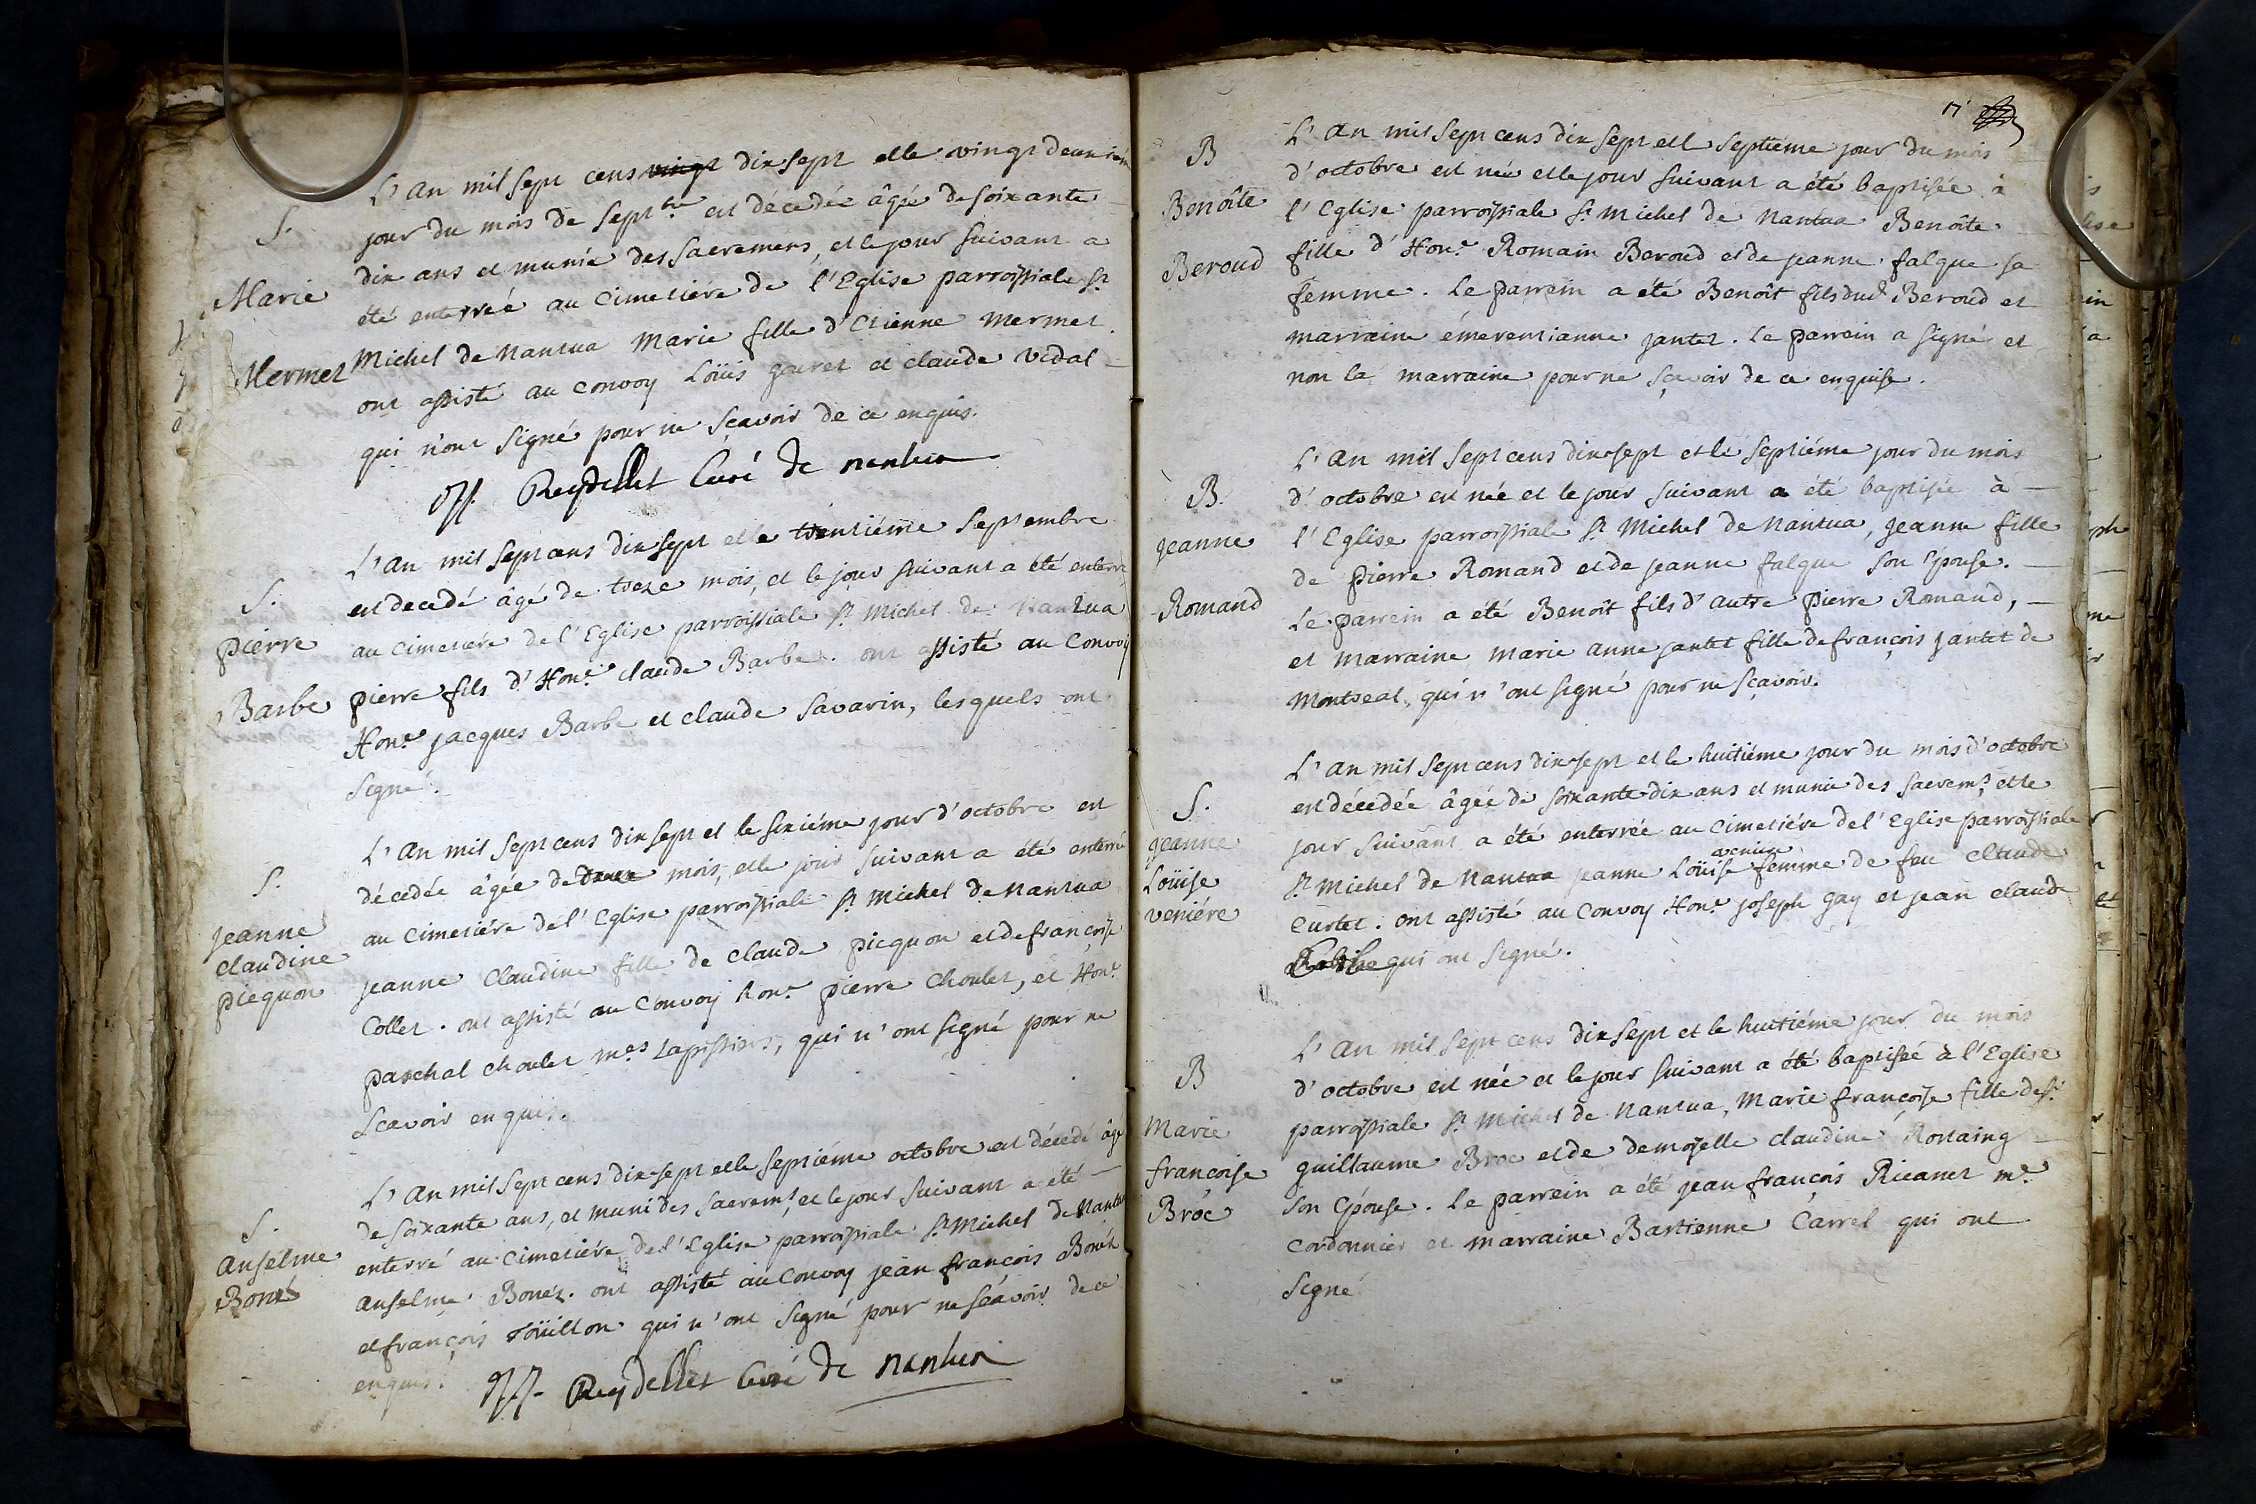 S.
Marie
Mermet
L'an mil sept cens vingt dix sept et le vingt deuxiém
jour du mois de Septbre est décedée âgée de soixante
dix ans et munie des Sacremens, et le jour suivant a
été enterreé au Cimetiére de l'Eglise parroissiale St
Michel de Nantua Marie fille d'Etienne Mermet.
ont assisté au convoy Loüis gouret et claude vidal
qui n'ont signé pour ne sçavoir de ce enquis.
Reydellet Curé de nantua
S.
pierre
Barbe
L'an mil sept cens dix sept et le trentiéme Septembre
est decedé âgé de treze mois, et le jour suivant a été enterré
au cimetiére de l'Eglise parroissiale St Michel de Nantua
pierre fils d'Hone claude Barbe. ont assisté au Convoy
Hone jacques Barbe et claude Savarin, lesquels ont
signé.
S.
jeanne
claudine
picquon
L'an mil sept cens dix sept et le sixiéme jour d'octobre est
décedée âgée de douze mois, et le jour suivant a été enterrée
au cimetiére de l'Eglise parroissiale St Michel de Nantua
jeanne Claudine fille de claude picquon et de françoise
Collet. ont assisté au Convoy hone pierre Choulet, et Hone
paschal choulet mes tapissiers, qui n'ont signé pour ne
scavoir enquis.
S.
Anselme
Boné
L'an mil sept cens dix sept et le septiéme octobre est décedé âgé
de soixante ans, et muni des sacremt, et le jour suivant a été
enterré au Cimetiére de l'Eglise parroissiale St Michel de Nantua
anselme Bonéz. ont assisté au Convoy jean françois Bonéz
et françois Toüillon qui n'ont signé pour ne scavoir de ce
enquis.
Reydellet Curé de nantua
17
B
Benoîte
Beroud
L'an mil sept cens dix sept et l septiéme jour du mois
d'octobre est née et le jour suivant a été baptisée à
l'Eglise parroissiale St Michel de Nantua Benoîte
fille d'Hone Romain Beroud et de jeanne falque sa
femme. Le parrein a été Benoît fils dud Beroud et
marraine émerentianne jantet. Le parrein a signé et
non la marraine pour ne sçavoir de ce enquise.
B
jeanne
Romand
L'an mil sept cens dix sept et le septiéme jour du mois
d'octobre est née et le jour suivant a été baptisée à
l'Eglise parroissiale St Michel de Nantua, jeanne fille
de pierre Romand et de jeanne falque son Epouse.
Le parrein a été Benoît fils d'autre pierre Romand,
et marraine marie anne jantet fille de françois jantet de
Montreal, qui n'ont signé pour ne sçavoir.
S.
jeanne
Loüise
veniére
L'an mil sept cens dix sept et le huitiéme jour du mois d'octobre
est décedée âgée de soixante dix ans et munie des sacremt, et le
jour suivant a été enterrée au Cimetiére de l'Eglise parroissiale
St Michel de Nantua jeanne Loüise femme de feu claude
Curtet. ont assisté au Convoy Hone joseph gay et jean claude
qui ont signé.
B
Marie
francoise
Broc
L'an mil sept cens dix sept et le huitiéme jour du mois
d'octobre est née et le jour suivant a été baptisée à l'Eglise
parroissiale St Michel de Nantua, Marie françoise fille de Sr
guillaume Broc et de demoiselle claudine Rostaing
son Epouse. Le parrein a été jean françois Ricanet me
cordonnier et marraine Bastienne Carrel qui ont
signé